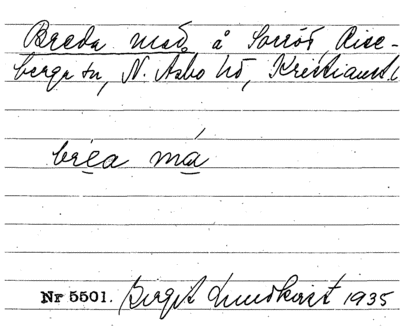 Breda mad, å Sorröd, Rise-
berga sn, N. Åsbo hd, Kristianst. l
bréa má
Nr 5501. Birgit Lundkvist 1935